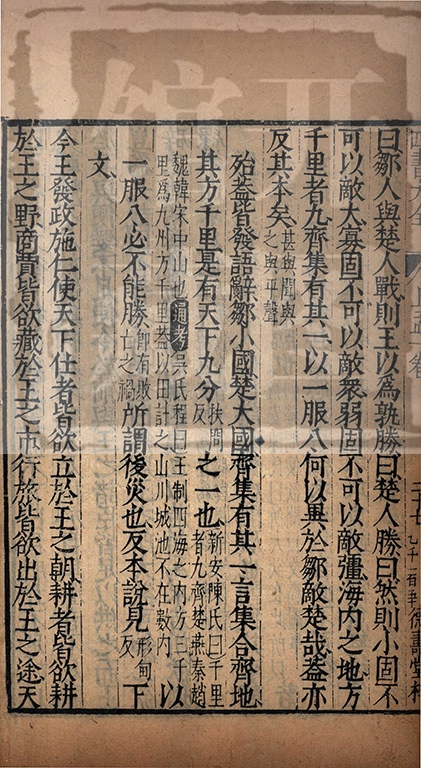 曰鄒人與楚人戰則王以爲孰勝曰楚人勝曰然則小固不
可以敵大寡固不可以敵衆弱固不可以敵彊海内之地方
千里者九齊集有其一以一服八何以異於鄒敵楚哉葢亦
反其本矣甚與聞與之與平聲
殆葢皆發語辭鄒小國楚大國齊集有其一言集合齊地
其方千里是有天下九分扶問反之一也新安陳氏曰千里者九齊楚燕秦趙
魏韓宋中山也通考吳氏程曰王制四海之内方三千里爲九州方千里葢以田計之山川城池不在數内以
一服八必不能勝卽有敗亡之禍所謂後災也反本說見形甸反下
文
今王發政施仁使天下仕者皆欲立於王之朝耕者皆欲耕
於王之野商賈皆欲藏於王之市行旅皆欲出於王之途天